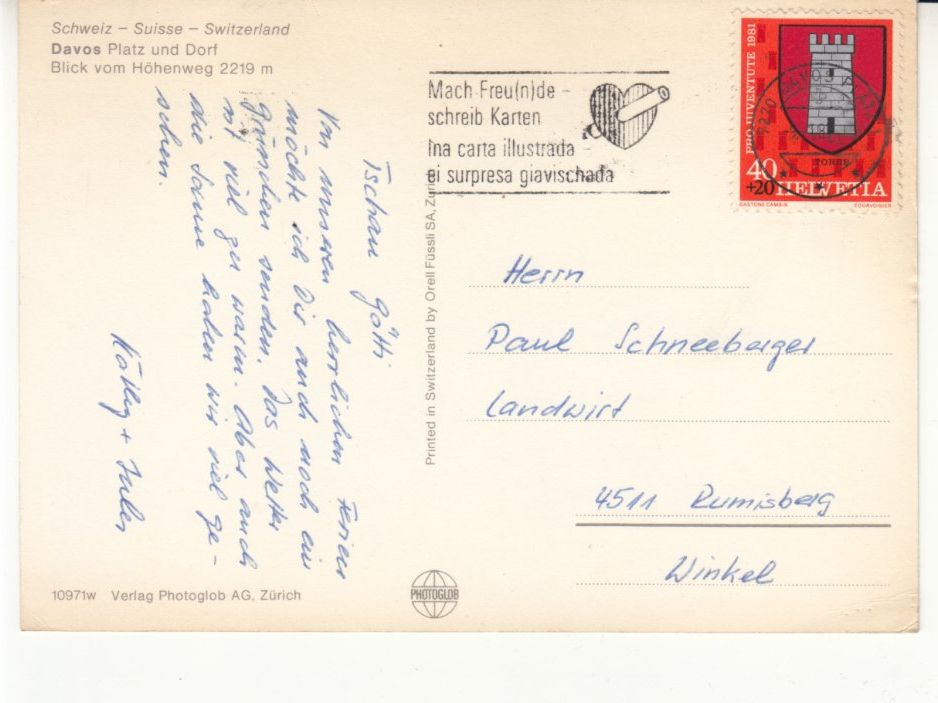 Schweiz – Suisse – Switzerland
Davos Platz und Dorf
Blick vom Höhenweg 2219 m
Mach Freu(n)de –
schreib Karten
Ina carta illustrada –
ei surpresa giavischada
PRO JUVENTUTE 1981
7270 DAVOS
TORRE
40
+20 HELVETIA
GASTONE CAMBIN COURVOISIER
Tschau Götti
Von unseren herrlichen Ferien
möchte ich Dir auch noch ein
Grüsschen senden. Das Wetter
ist viel zu warm. Aber auch
die Sonne haben wir viel ge-
sehen.
Käthy + Jules
Printed in Switzerland by Orell Füssli SA, Zürich
Herrn
Paul Schneeberger
Landwirt
4511 Rumisberg
Winkel
10971w Verlag Photoglob AG, Zürich
PHOTOGLOB